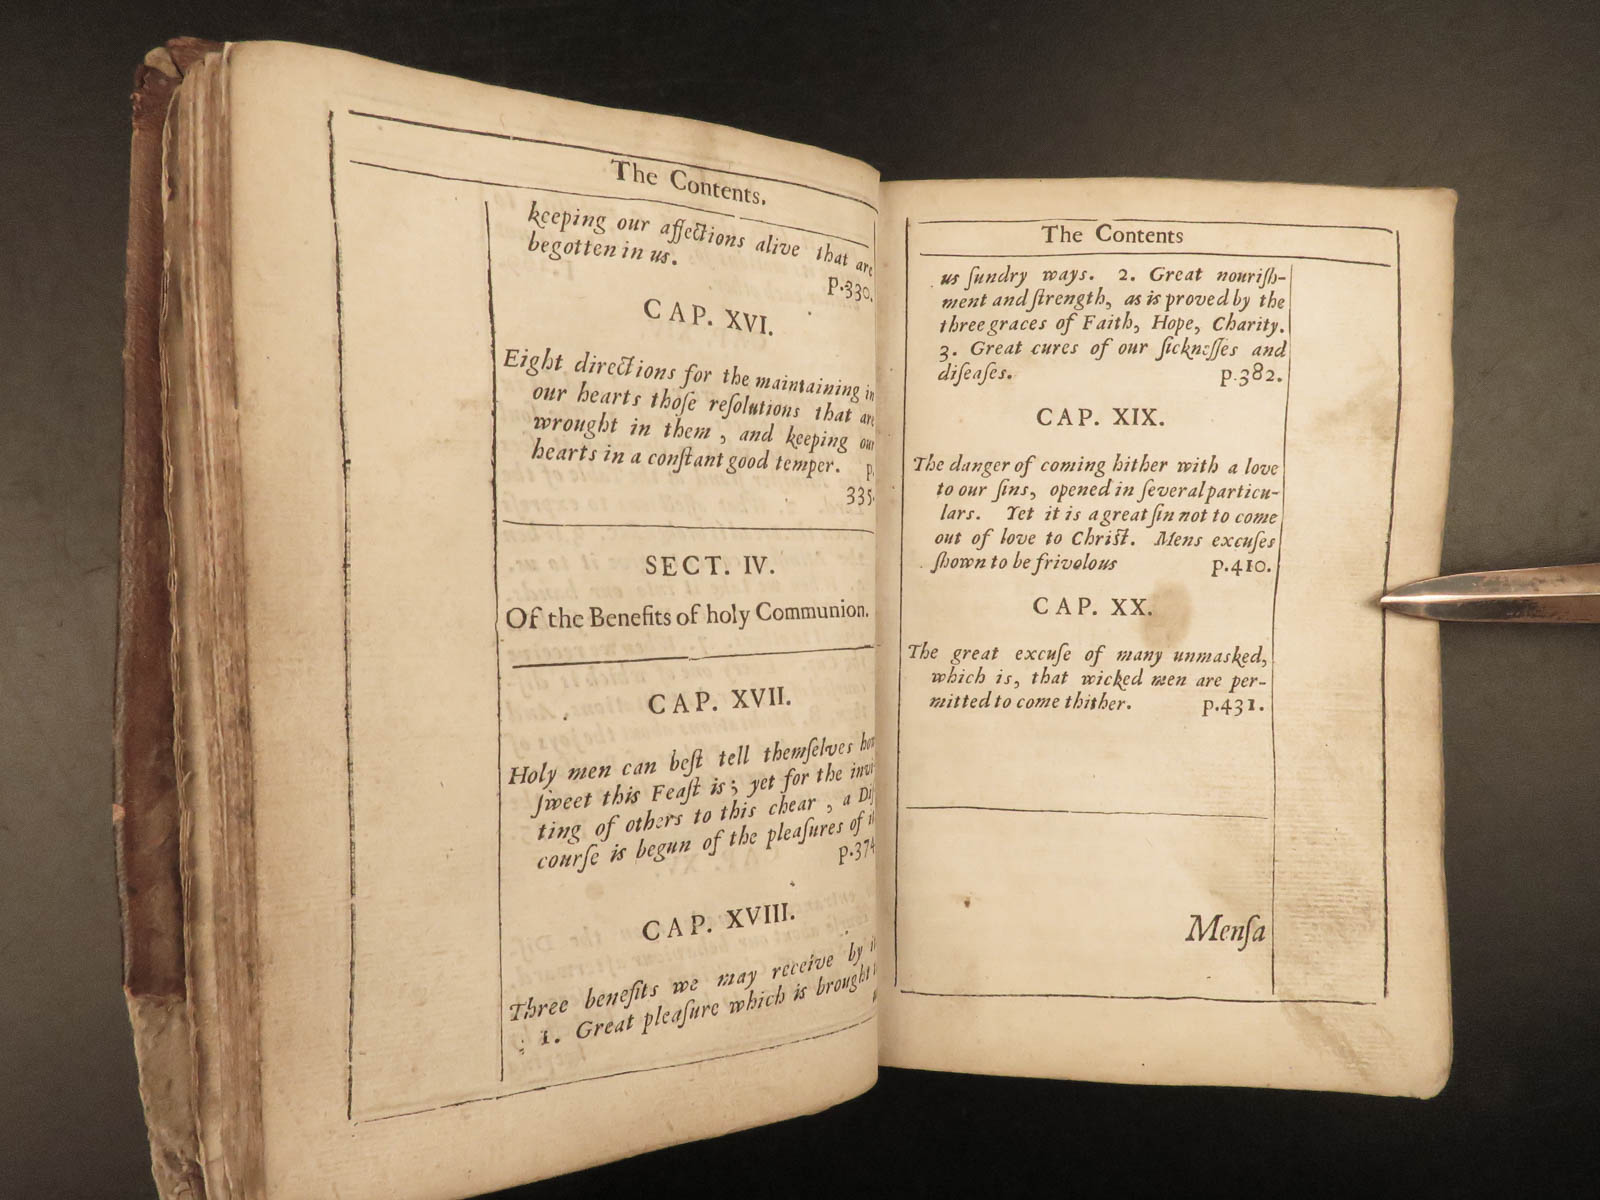 The Contents.
keeping our affections alive that are
begotten in us.
p.330.
CAP. XVI.
Eight directions for the maintaining in
our hearts thoſe reſolutions that are
wrought in them, and keeping our
hearts in a conſtant good temper. p.
335.
SECT. IV.
Of the Benefits of holy Communion.
CAP. XVII.
Holy men can beſt tell themſelves how
ſweet this Feaſt is; yet for the invi-
ting of others to this chear, a Diſ-
courſe is begun of the pleaſures of it
p.374
CAP. XVIII.
Three benefits we may receive by it
1. Great pleaſure which is brought
The Contents
us ſundry ways. 2. Great nouriſh-
ment and ſtrength, as is proved by the
three graces of Faith, Hope, Charity.
3. Great cures of our ſickneſſes and
diſeaſes. p.382.
CAP. XIX.
The danger of coming hither with a love
to our ſins, opened in ſeveral particu-
lars. Yet it is a great ſin not to come
out of love to Chriſt. Mens excuſes
ſhown to be frivolous p.410.
CAP. XX.
The great excuſe of many unmasked,
which is, that wicked men are per-
mitted to come thither. p.431.
Menſa